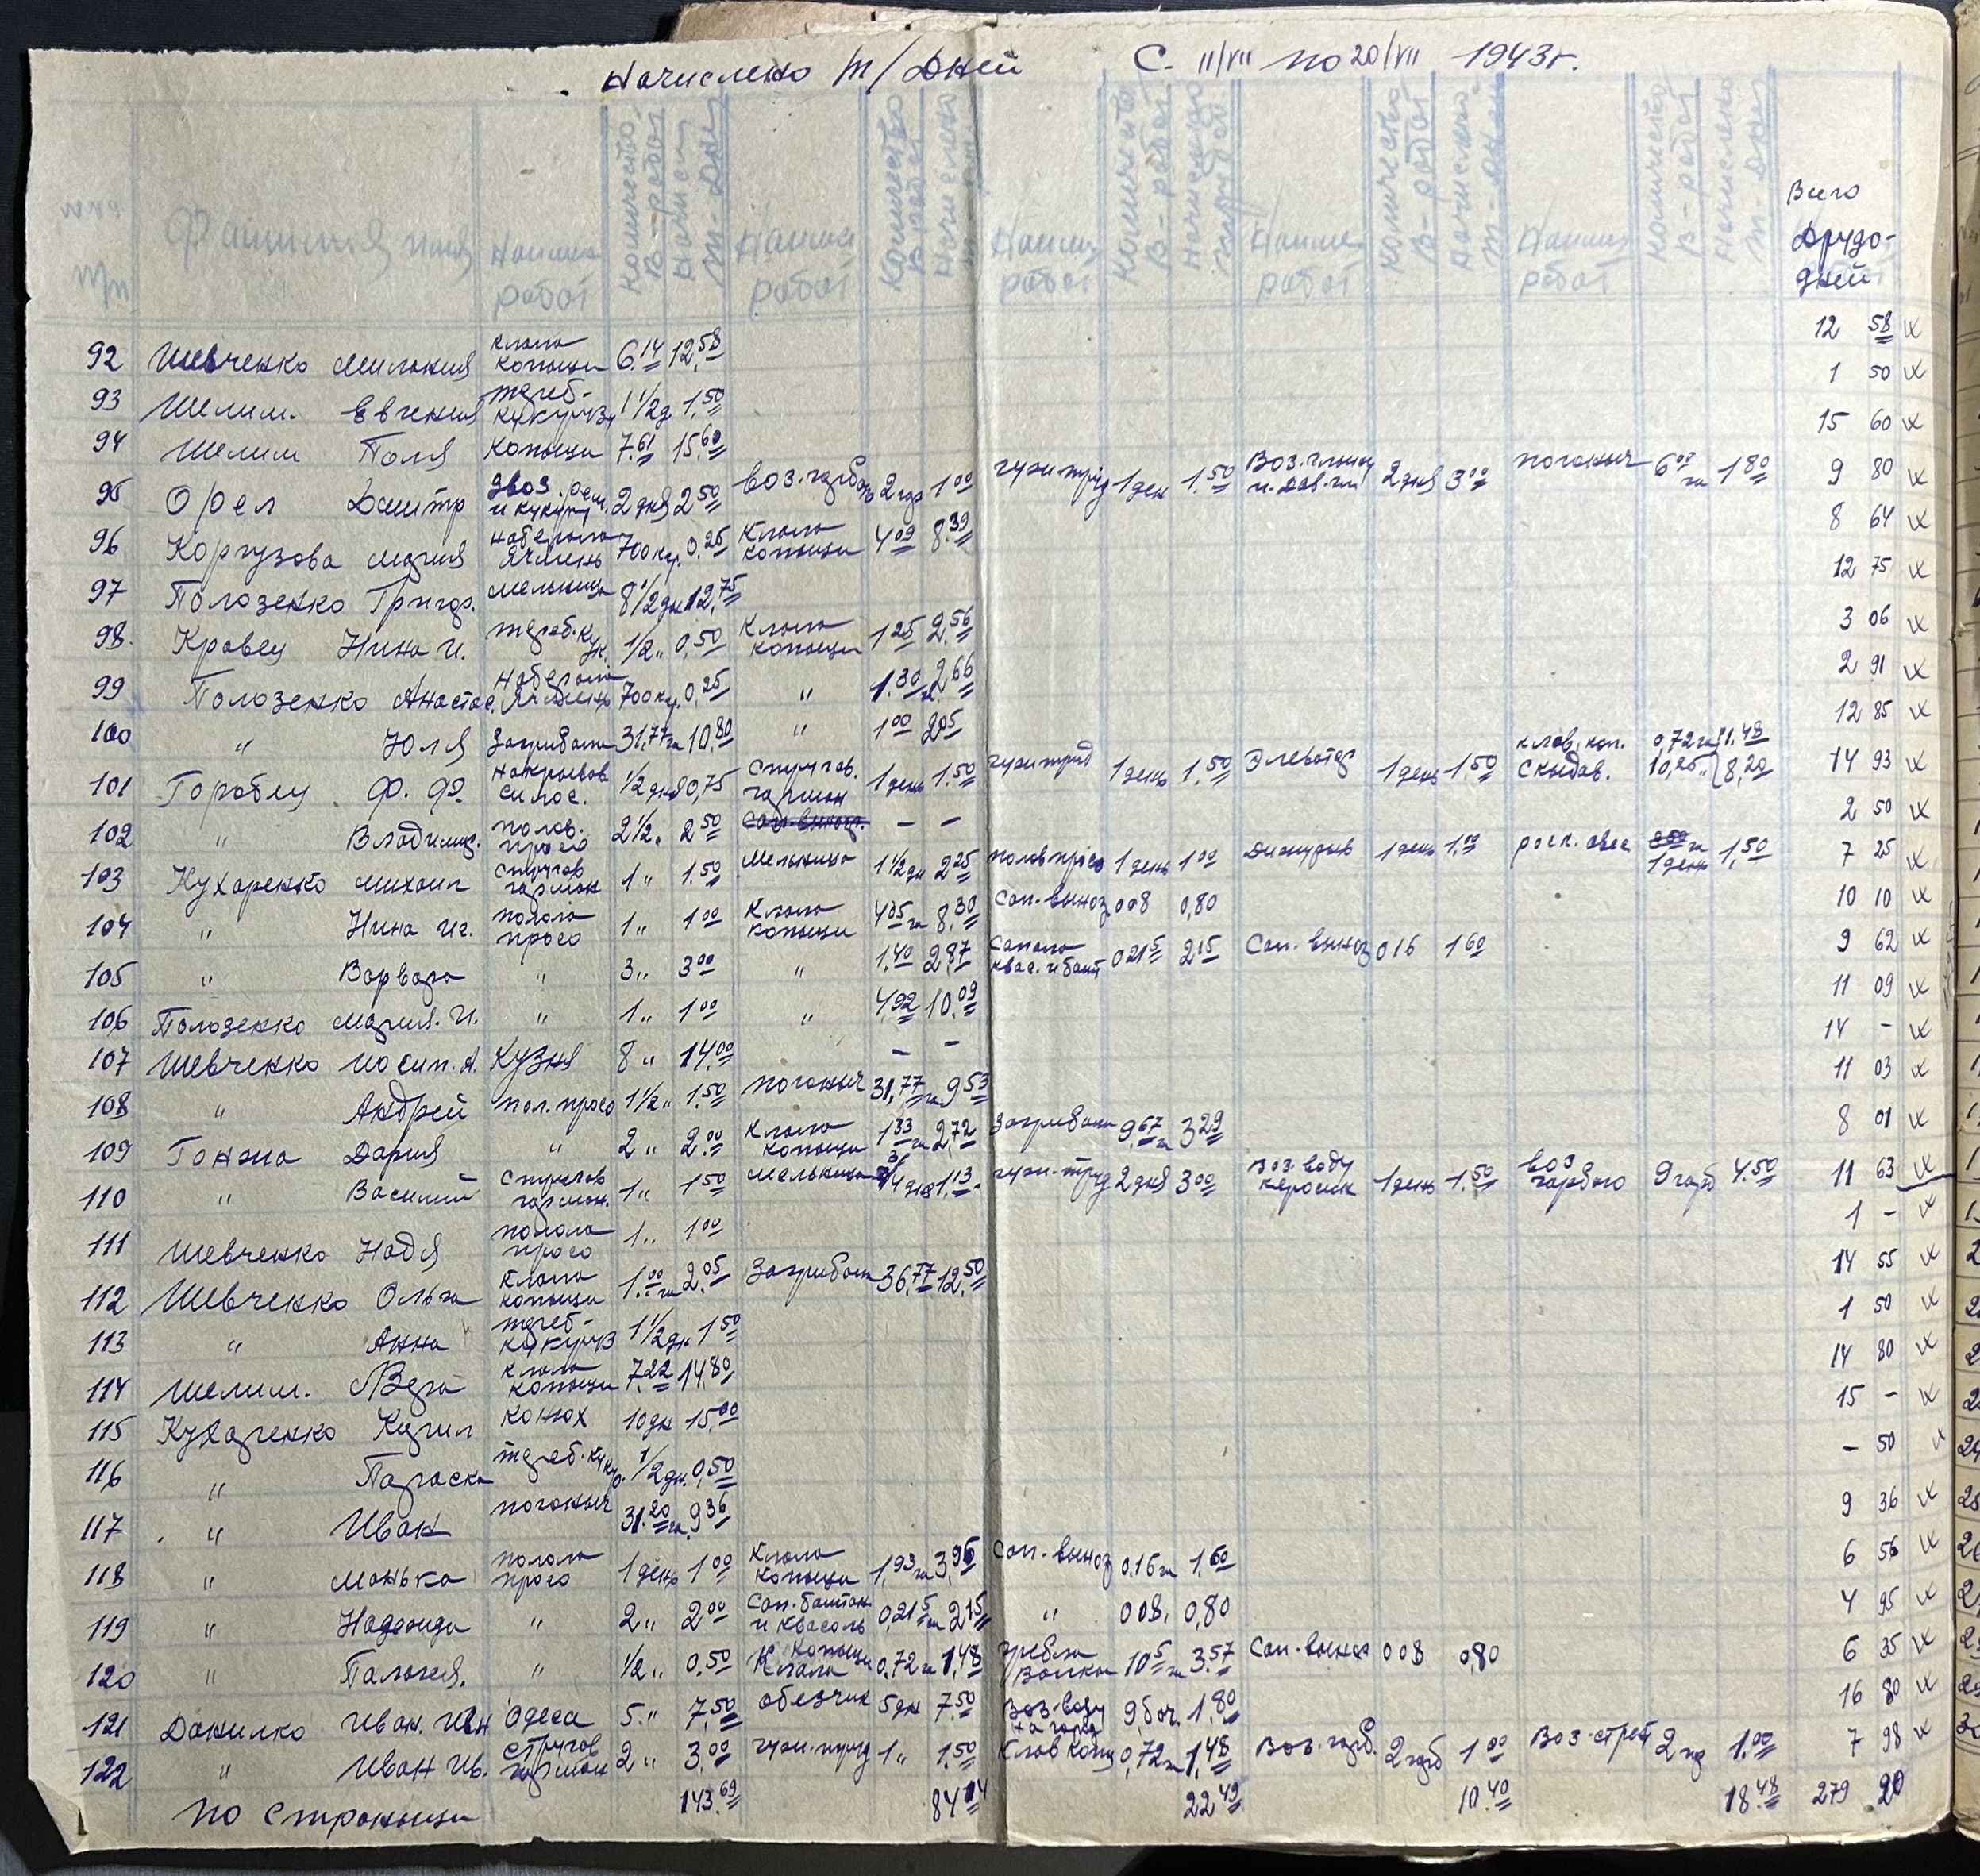 Начислено т/дней С. 11/VII по 20/VII 1943г.
№№ п/п Фамилия имя Наимен работ Количество В-работ Начисл Т-дней Наимен работ Количество В работ Начислено Наимен работ Количество В-работ Начислено Наимен работ Количество В-работ Начислено Т-дней Наимен работ Количество В-работ Начислено Т-дней Всего Трудо-дней
92 Шевченко Милания клала копыци 6.14 12.58 12 58
93 Шелим. Евгения тереб- кукурузу 1 1/2д 1.50 1 50
94 Шелим Поля копыци 7.61 15.60 15 60
95 Орел Дмитр и кукуруз. 2 дня 2 50 воз. гарбою 2 гар 1 00 гужтруд 1 ден 1.50 Воз. глину 2 дня 3 00 поганыч 6 00 га 1 80 9 80
96 Коргузова Мария ячмень 700 кг. 0.25 Клала копыци 4 09 8.39 8 64
97 Полозенко Григор. мельница 8 1/2 дн 12.75 12 75
98. Кравец Нина И. тереб. кук. 1/2 " 0,50 Клала копыци 1 25 2.56 3 06
99 Полозенко Анастас. ячмень 700 кг. 0.25 " 1.30 2.66 2 91
100 " Юля Загрибала 31,77 га 10.80 " 1 00 2 05 12 85
101 Горобец Ф. Ф. накрывов силос. 1/2 дня 0,75 гарман 1 день 1.50 гужтруд 1 день 1.50 Элеватор 1 день 1.50 клав. коп. 0,72 га 1.48 Скидав. 10,25 " 8,20 14 93
102 " Владимир. полов. просо 2 1/2 " 2 50 Сап. виногр. — — 2 50
103 Кухаренко Михаил гарман 1 " 1.50 Мельница 1 1/2 дн 2 25 полов просо 1 день 1 00 1 день 1.00 овес 1 день 1,50 7 25
104 " Нина Иг. полола просо 1 " 1 00 Клала копыци 4 05 га 8.30 Сап. виног 0 08 0,80 10 10
105 " Варвара " 3 " 3 00 " 1.40 2.87 Сапала квас. и башт 0 21 5 2 15 Сап. виног 0 16 1 60 9 62
106 Полозенко Мария. И. " 1 " 1 00 " 4.92 10.09 11 09
107 Шевченко Иосип. А. Кузня 8 " 14.00 — — 14 -
108 " Андрей пол. просо 1 1/2 " 1.50 поганыч 31,77 га 9 53 11 03
109 Гонжа Дария " 2 " 2.00 Клала копыци 1 33 га 2,72 Загрибала 9.67 га 3 29 8 01
110 " Василий гарман. 1 " 1 50 мельница 3/4 дня 1.13 гуж. труд 2 дня 3 00 воз воду керосин 1 день 1.50 воз гарбою 9 гарб 4.50 11 63
111 Шевченко Надя полола просо 1 " 1 00 1 -
112 Шевченко Ольга Клала копыци 1.00 га 2.05 Загрибал 36.77 12.50 14 55
113 " Анна тереб- кукуруз 1 1/2 дн. 1 50 1 50
114 Шелим. Вера клала копыци 7.22 14,80 14 80
115 Кухаренко Кирил конюх 10 дн 15.00 15 -
116 " Параска тереб. кукур. 1/2 дн. 0,50 - 50
117 . " Иван поганыч 31.20 га 9 36 9 36
118 " Манька полола просо 1 день 1 00 Клала копыци 1,93 га 3,96 Сап. виног 0,16 га 1,60 6 56
119 " " 2 " 2 00 Сап. баштан и квасоль 0,21 5 га 2 15 " 0 08, 0,80 4 95
120 " Палагея. " 1/2 " 0,50 Клала копыци 0,72 га 1,48 гребла 10 5 га 3.57 Сап. виног 0 08 0,80 6 35
121 Данилко Иван. Ив Одеса 5. " 7.50 обезчик 5 дн 7.50 Воз. воду на город 9 боч. 1.80 16 80
122 " Иван Ив. гарман 2 " 3.00 гуж. труд 1 " 1.50 Клав копиц 0,72 га 1,48 Воз. гарб. 2 гарб 1 00 2 1.00 7 98
По странице 143.69 84 14 22 49 10.40 18.48 279 20